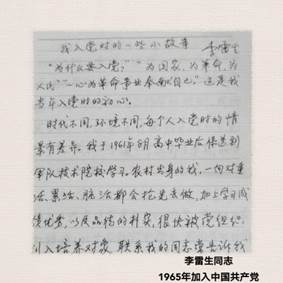 我入党时的一些小故事
李雷生
"为什么要入党?" "为国家,为革命,为
人民" "一心为革命事业奋斗自己。"这是我
当年入党时的初心。
时代不同,环境不同,每个人入党时的情
景有差异。我于1961年8月高中毕业后保送到
军队技术院校学习。农村出身的我,一向对重
活、累活、脏活都会抢先去做,加上学习成
绩优秀,以及品格的朴实,很快被党组织
引入培养对象 联系我的同志常告诉我
李雷生同志
1965年加入中国共产党